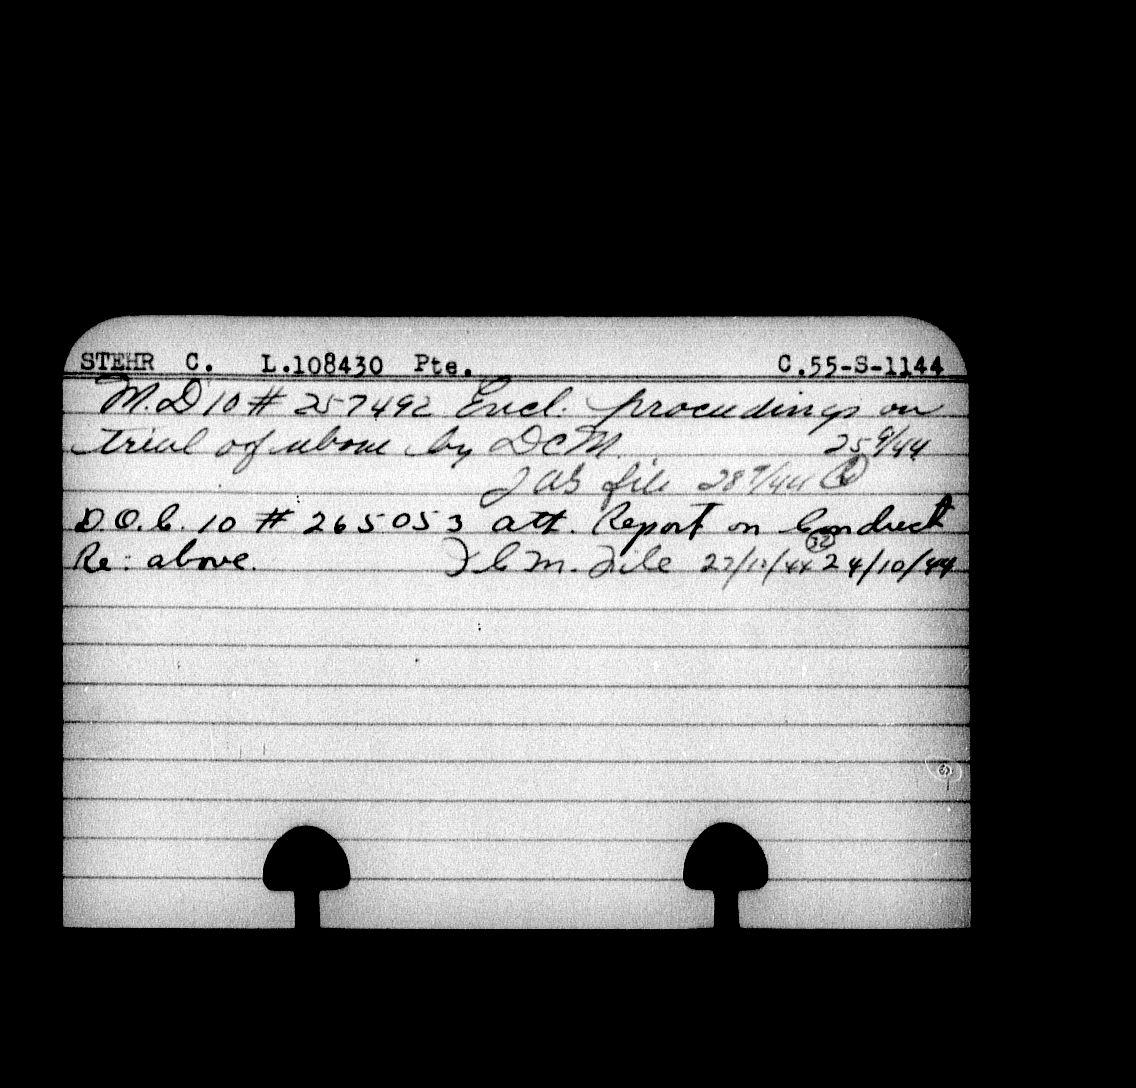 STEHR C. L.108430 Pte. C.55-S-1144
M.D 10 # 257492 Encl. proceedings on
trial of above by DCM. 25 9/44
file 28 9/44
D.O.C. 10 # 265053 att. Report on Conduct
Re: above. C.M. File 27/10/44 32 24/10/44